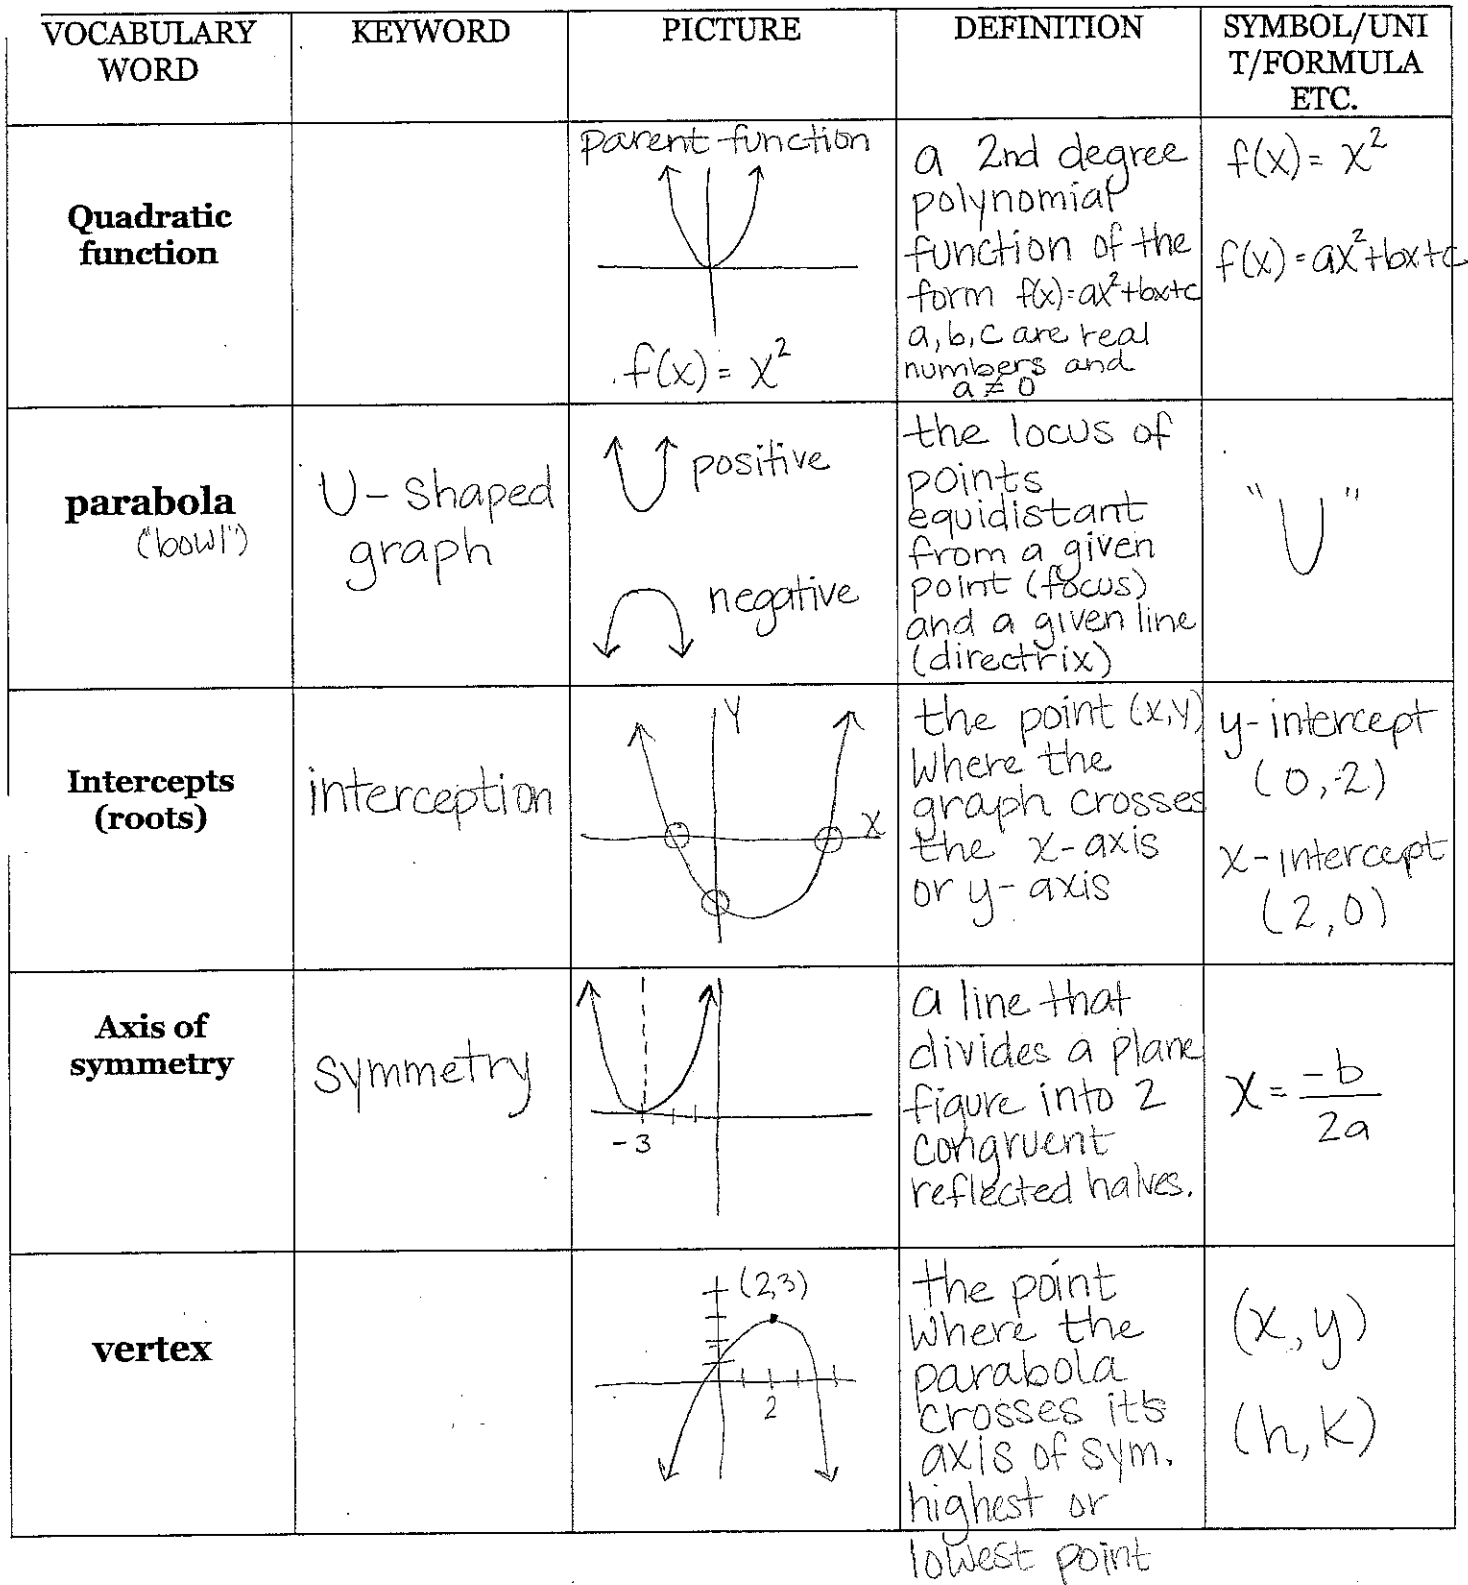 VOCABULARY
WORD
KEYWORD
PICTURE
DEFINITION
SYMBOL/UNI
T/FORMULA
ETC.
Quadratic
function
parent function
f(x) = x²
a 2nd degree
polynomial
function of the
form f(x)=ax²+bx+c
a, b, c are real
numbers and
a ≠ 0
f(x) = x²
f(x) = ax²+bx+c
parabola
("bowl")
U-shaped
graph
positive
negative
the locus of
points
equidistant
from a given
point (focus)
and a given line
(directrix)
"U"
Intercepts
(roots)
interception
y
x
the point (x,y)
where the
graph crosses
the x-axis
or y-axis
y-intercept
(0,-2)
x-intercept
(2,0)
Axis of
symmetry
symmetry
-3
a line that
divides a plane
figure into 2
congruent
reflected halves.
x = -b
2a
vertex
(2,3)
2
the point
where the
parabola
crosses its
axis of sym.
highest or
lowest point
(x,y)
(h,k)